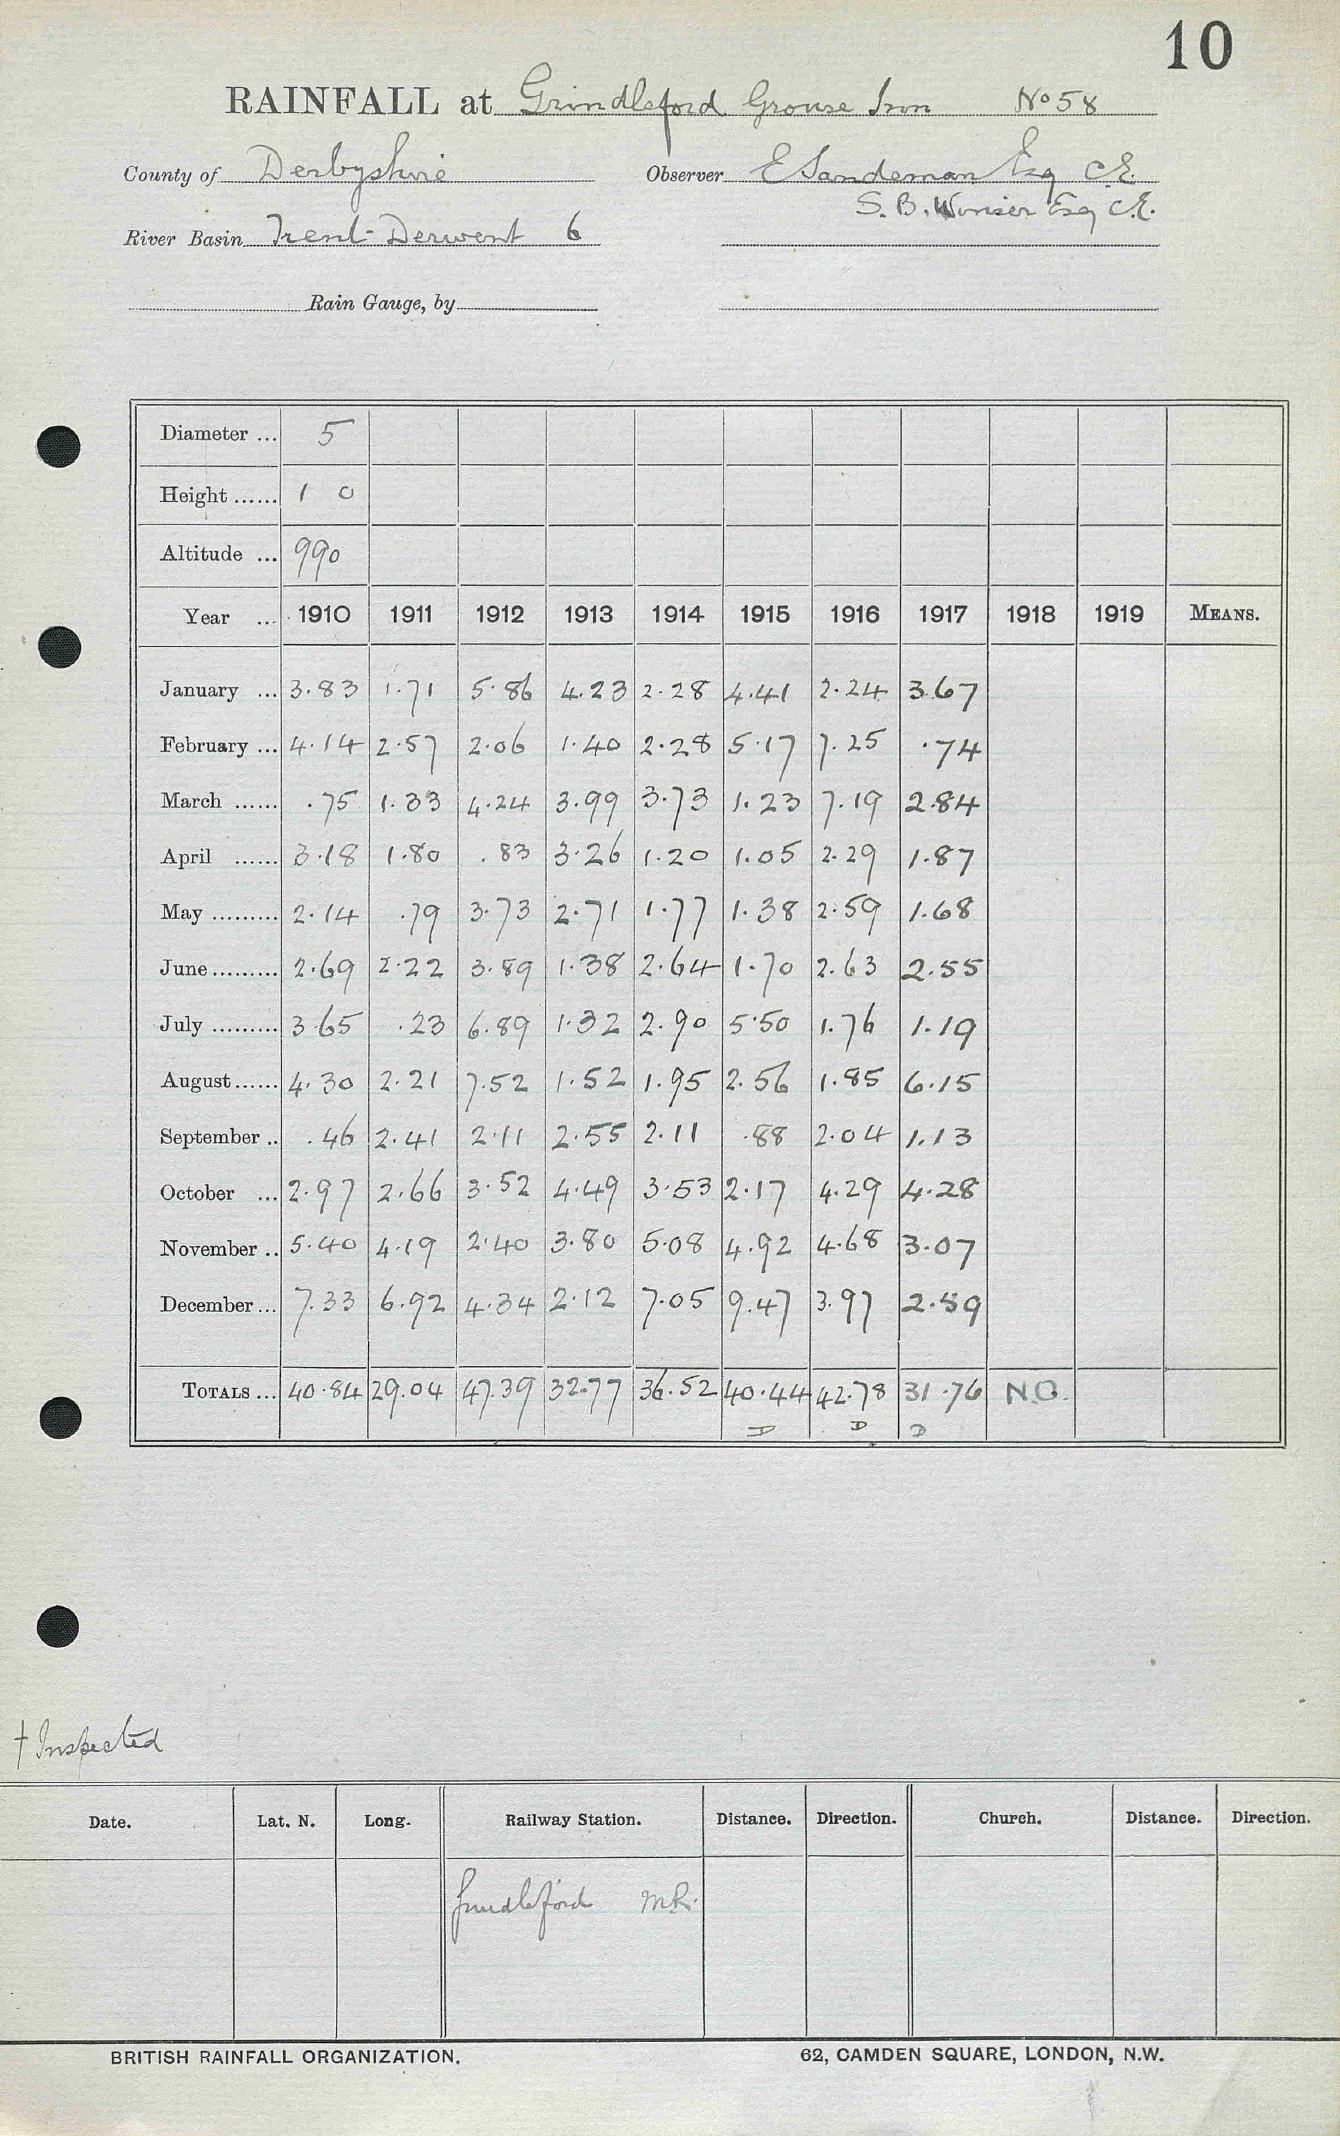 10
RAINFALL at Grindleford Grouse Inn No 58
County of Derbyshire Observer E Sandeman Esq C.E.
S. B. Winser Esq C.E.
River Basin Trent-Derwent 6
Rain Gauge, by
Diameter ... 5
Height ...... 1 0
Altitude ... 990
Year ... 1910 1911 1912 1913 1914 1915 1916 1917 1918 1919 MEANS.
January ... 3.83 1.71 5.86 4.23 2.28 4.41 2.24 3.67
February ... 4.14 2.57 2.06 1.40 2.28 5.17 7.25 .74
March ...... .75 1.33 4.24 3.99 3.73 1.23 7.19 2.84
April ...... 3.18 1.80 .83 3.26 1.20 1.05 2.29 1.87
May ......... 2.14 .79 3.73 2.71 1.77 1.38 2.59 1.68
June ......... 2.69 2.22 3.89 1.38 2.64 1.70 2.63 2.55
July ......... 3.65 .23 6.89 1.32 2.90 5.50 1.76 1.19
August ...... 4.30 2.21 7.52 1.52 1.95 2.56 1.85 6.15
September .. .46 2.41 2.11 2.55 2.11 .88 2.04 1.13
October ... 2.97 2.66 3.52 4.49 3.53 2.17 4.29 4.28
November .. 5.40 4.19 2.40 3.80 5.08 4.92 4.68 3.07
December ... 7.33 6.92 4.34 2.12 7.05 9.47 3.97 2.59
TOTALS ... 40.84 29.04 47.39 32.77 36.52 40.44 42.78 31.76 N.O.
D D D
† Inspected
Date. Lat. N. Long. Railway Station. Distance. Direction. Church. Distance. Direction.
Grindleford M.R.
BRITISH RAINFALL ORGANIZATION. 62, CAMDEN SQUARE, LONDON, N.W.